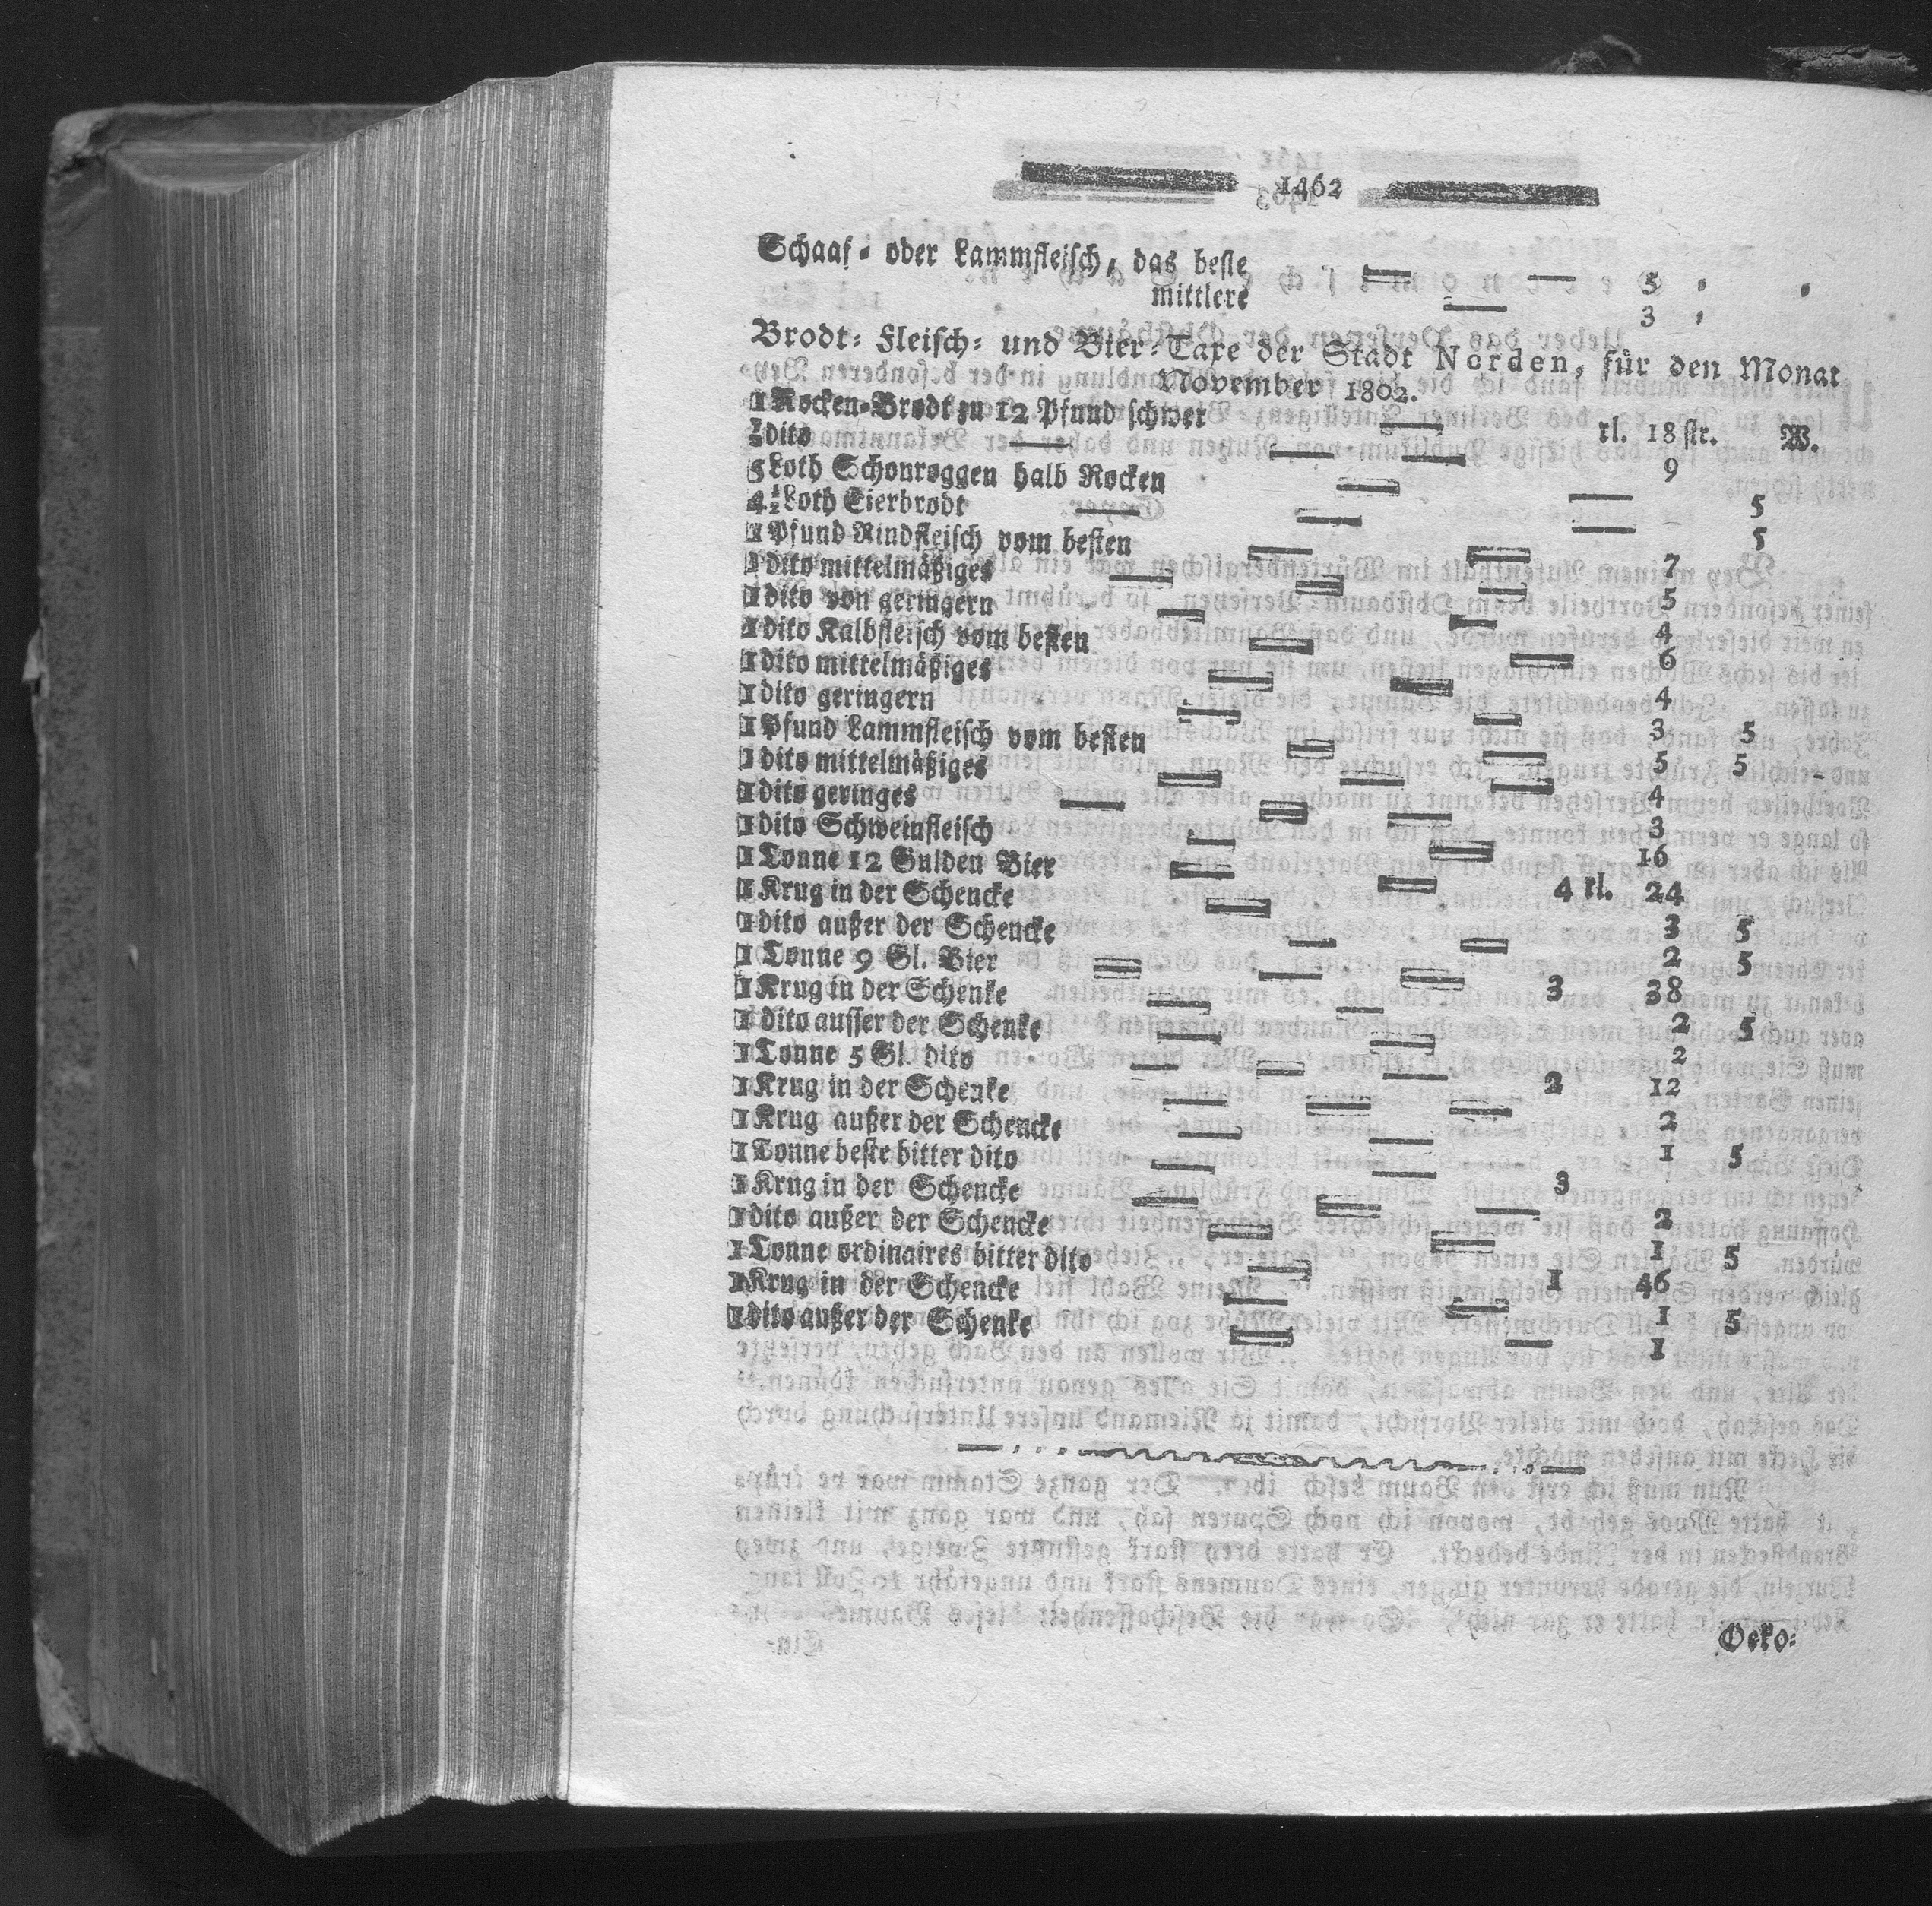 1462
Schaaf- oder Lammfleisch, das beste — — 5
mittlere — 3
Brodt- Fleisch- und Bier-Taxe der Stadt Norden, für den Monat
November 1802.
1 Rocken-Brodt zu 12 Pfund schwer — rl. 18 str. W.
½ dito — — — 9
5 Loth Schonroggen halb Rocken — — 5
4½ Loth Eierbrodt — — — 5
1 Pfund Rindfleisch vom besten — — 7
1 dito mittelmäßiges — — — 5
1 dito von geringern — — 4
1 dito Kalbfleisch vom besten — — 6
1 dito mittelmäßiges — — 4
1 dito geringern — — 3 5
1 Pfund Lammfleisch vom besten — — 5 5
1 dito mittelmäßiges — — — 4
1 dito geringes — — — 3
1 dito Schweinfleisch — — 16
1 Tonne 12 Gulden Bier — — 4 rl. 24
1 Krug in der Schencke — 3 5
1 dito außer der Schencke — — 2 5
1 Tonne 9 Gl. Bier — — — 3 38
1 Krug in der Schenke — — 2 5
1 dito ausser der Schenke — — 2
1 Tonne 5 Gl. dito — — — 2 12
1 Krug in der Schenke — — — 2
1 Krug außer der Schencke — — 1 5
1 Tonne beste bitter dito — — 3
1 Krug in der Schencke — — — 2
1 dito außer der Schencke — — 1 5
1 Tonne ordinaires bitter dito — 1 46
1 Krug in der Schencke — — 1 5
1 dito außer der Schenke — — 1
Oeko-